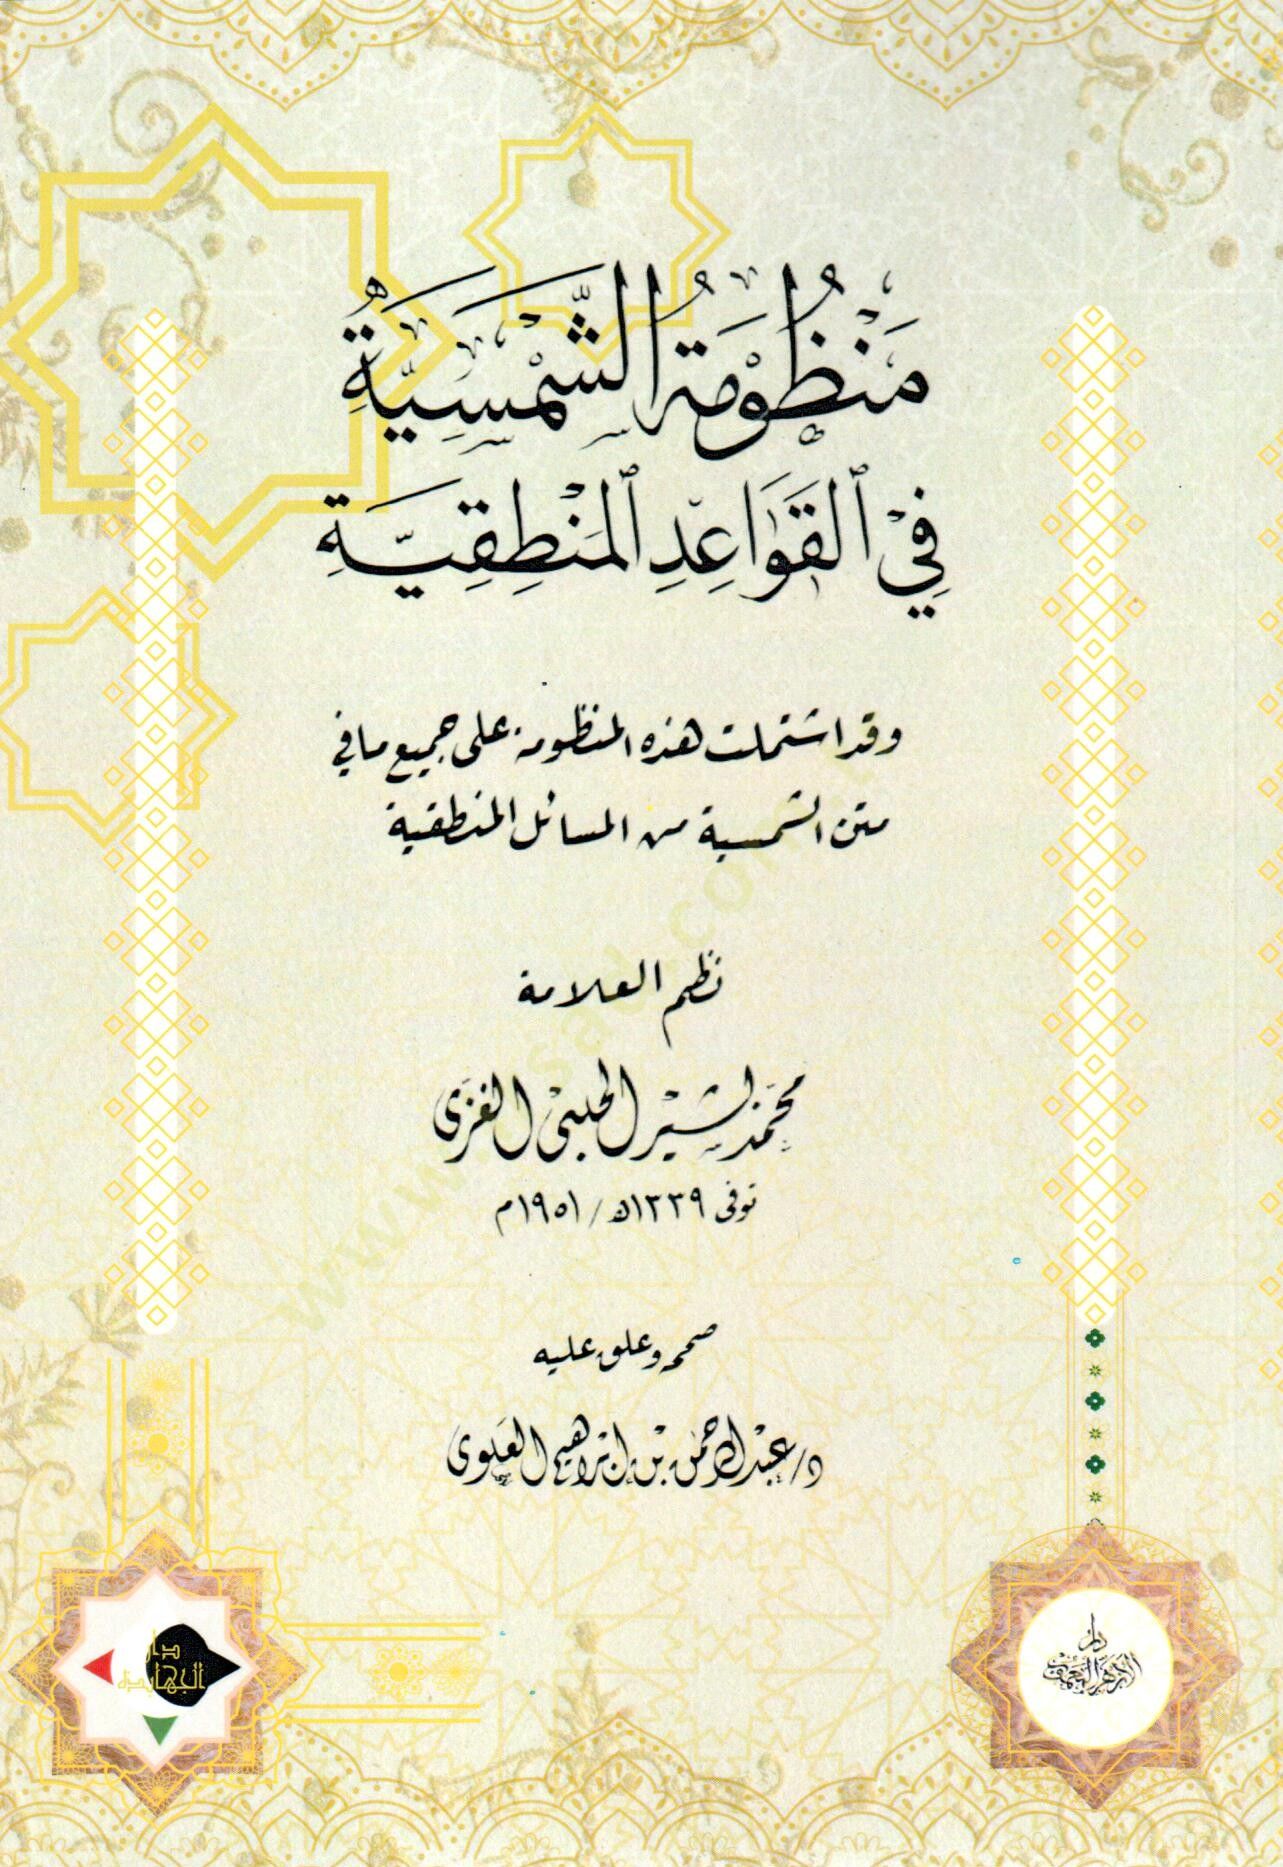 مَنْظُوْمَةُ الشَّمْسِيَّةِ
فِيْ ٱلقَوَاعِدِ ٱلمَنْطِقِيَّةِ
وقد اشتملت هذه المنظومة على جميع ما في
متن الشمسية من المسائل المنطقية
نظم العلامة
محمد بشير الحلبي الغزي
توفى ١٣٣٩ه / ١٩٥١م
صححه وعلق عليه
د/ عبد الرحمن بن إبراهيم العلوى
دار
الجهابذة
دار